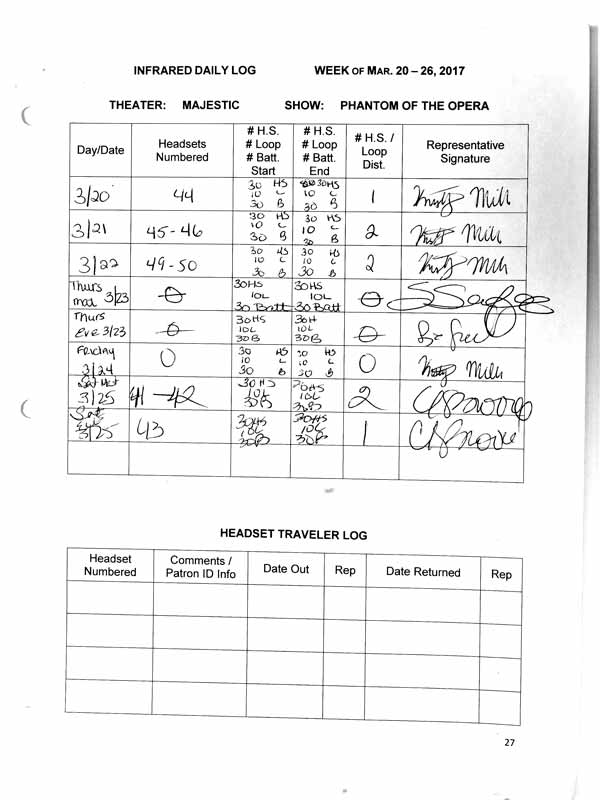 INFRARED DAILY LOG WEEK OF MAR. 20 – 26, 2017
THEATER: MAJESTIC SHOW: PHANTOM OF THE OPERA
Day/Date
Headsets
Numbered
# H.S.
# Loop
# Batt.
Start
# H.S.
# Loop
# Batt.
End
# H.S. /
Loop
Dist.
Representative
Signature
3/20
44
30 HS
10 L
30 B
30HS
10 L
30 B
1
3/21
45-46
30 HS
10 L
30 B
30 HS
10 L
30 B
2
3/22
49-50
30 HS
10 L
30 B
30 HS
10 L
30 B
2
Thurs
mat 3/23
0
30HS
10L
30 Batt
30HS
10L
30 Batt
0
Thurs
Eve 3/23
0
30HS
10L
30B
30H
10L
30B
0
Friday
3/24
0
30 HS
10 L
30 B
30 HS
10 L
30 B
0
Sat Mat
3/25
41-42
30HS
10L
30B
30HS
10L
30B
2
Sat
Eve
3/25
43
30HS
10L
30B
30HS
10L
30B
1
HEADSET TRAVELER LOG
Headset
Numbered
Comments /
Patron ID Info
Date Out
Rep
Date Returned
Rep
27